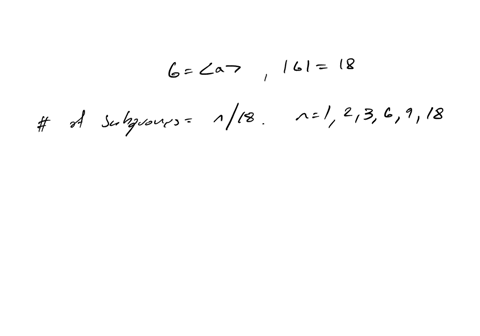 G = <a> , |G| = 18
# of subgroups = n/18. n = 1, 2, 3, 6, 9, 18